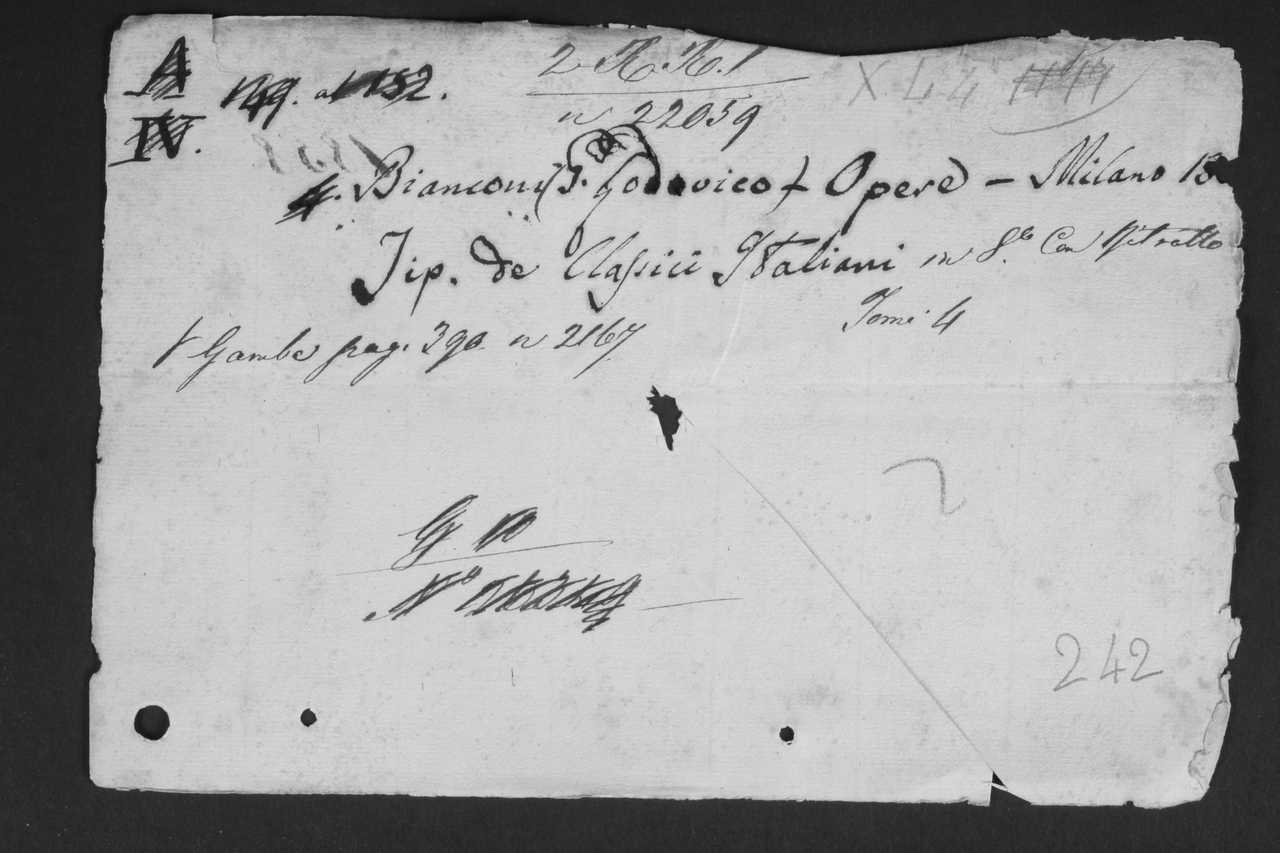 A
IV. 149. a 1152.
2 R. R. 1
n 22059
X L 4
4. Bianconi (G. Lodovico) Opere - Milano 18
Tip. de Classici Italiani in 8.º Con Ritratto
Tomi 4
V Gamba pag. 390 n 2167
2
G. 10
Nº
242